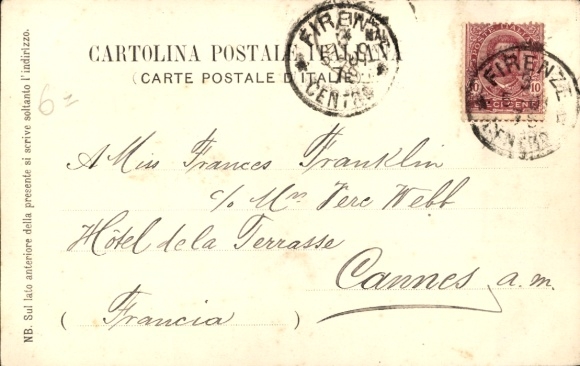 CARTOLINA POSTALE ITALIANA
(CARTE POSTALE D'ITALIE)
FIRENZE
CENTRO
FIRENZE
CENTRO
10
10
6=
A Miss Frances Franklin
c/o Mrs Vere Webb
Hôtel de la Terrasse
Cannes a.m.
(Francia)
NB. Sul lato anteriore della presente si scrive soltanto l'indirizzo.